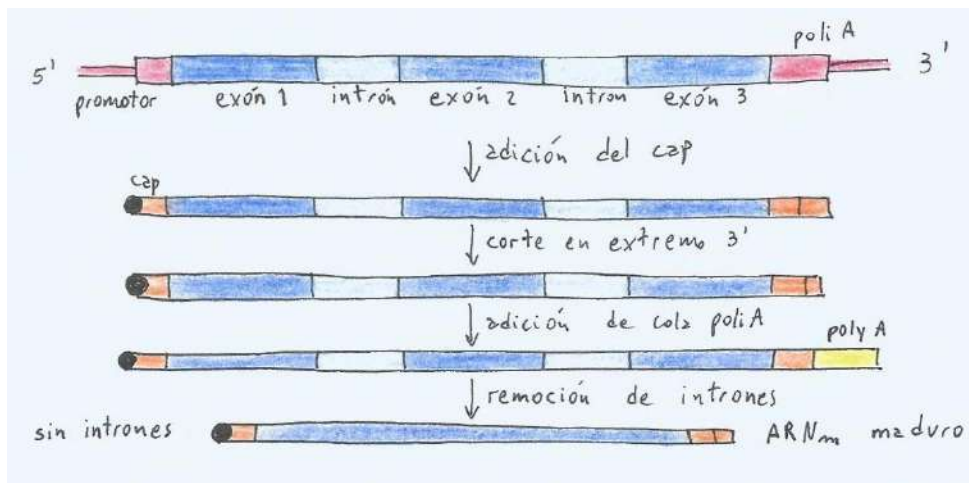 poli A
5' 3'
promotor exón 1 intrón exón 2 intron exón 3
adición del cap
cap
corte en extremo 3'
adición de cola poliA
poly A
remoción de intrones
sin intrones ARNm maduro